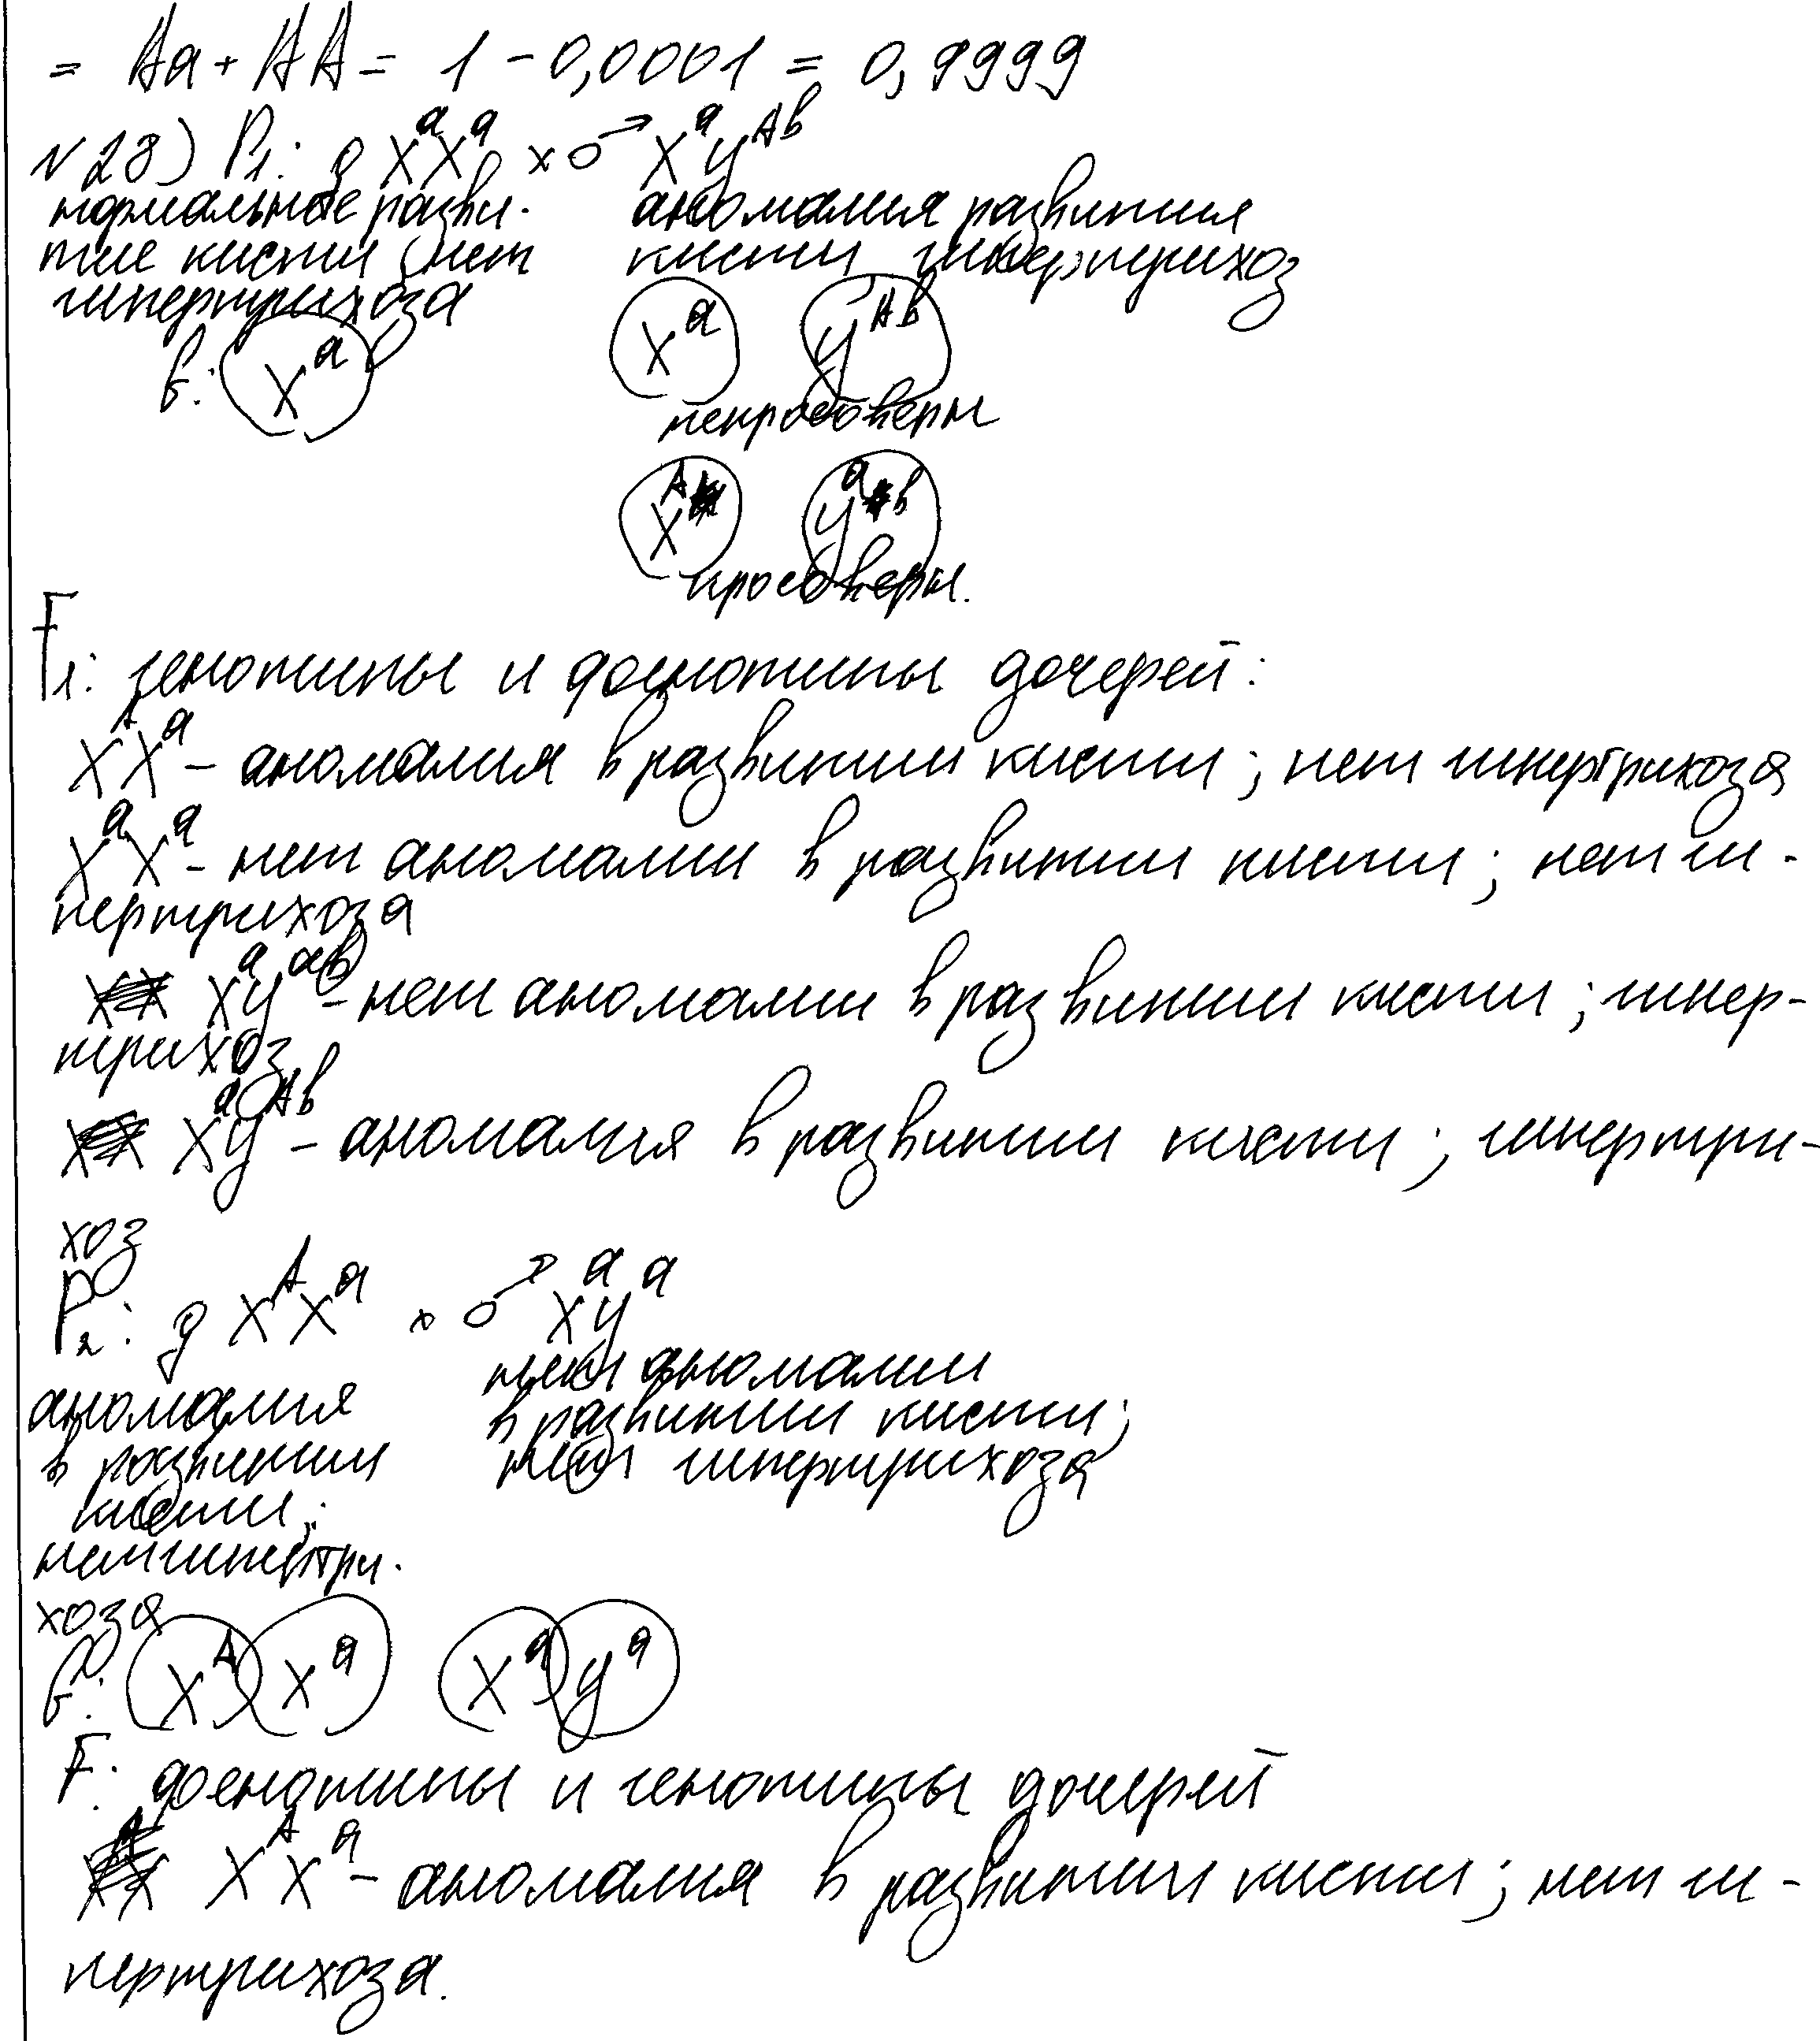 = Aa + AA = 1 - 0,0001 = 0,9999
№28) P₁: ♀ XᵃXᵃ × ♂ XᵃYᴬᵇ
нормальное разви- аномалия развития
тие кисти, нет кисти гипертрихоз
гипертрихоза
G: Xᵃ Xᵃ Yᴬᵇ
некроссоверн
Xᴬ Yᵃᵇ
кроссоверн.
F₁: генотипы и фенотипы дочерей:
XᴬXᵃ - аномалия в развитии кисти; нет гипертрихоза
XᵃXᵃ - нет аномалии в развитии кисти; нет ги-
пертрихоза
XᵃYᵃᵇ - нет аномалии в развитии кисти; гипер-
трихоз
XᵃYᴬᵇ - аномалия в развитии кисти; гипертри-
хоз
P₂: ♀ XᴬXᵃ × ♂ XᵃYᵃ
нет аномалии
аномалия в развитии кисти;
в развитии нет гипертрихоза
кисти;
нет гипертри-
хоза
G: Xᴬ Xᵃ Xᵃ Yᵃ
F: фенотипы и генотипы дочерей
XᴬXᵃ - аномалия в развитии кисти; нет ги-
пертрихоза.